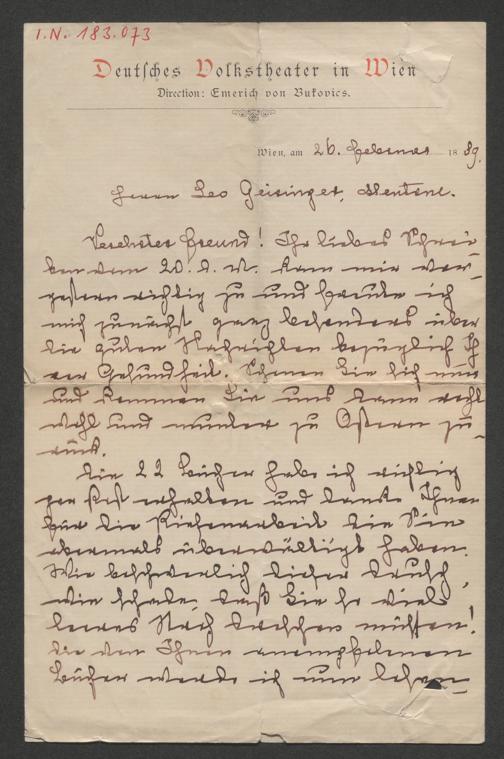 I.N. 183.073
Deutsches Volkstheater in Wien
Direction: Emerich von Bukovics.
Wien, am 26. Februar 1889.
Herrn Leo Geiringer, Mentone.
Verehrter Freund! Ihr liebes Schrei-
ben vom 20. d. M. kam mir vor-
gestern richtig zu und freute ich
mich zunächst ganz besonders über
die guten Nachrichten bezüglich Ih-
rer Gesundheit. Schonen Sie sich nur
und kommen Sie uns dann recht
wohl und munter zu Ostern zu-
rück.
Die 22 Bücher habe ich richtig
per Post erhalten und danke Ihnen
für die Riesenarbeit die Sie
abermals überwältigt haben.
Wie beschwerlich dieser Drusch,
wie schade, daß Sie so viel
leeres Stroh dreschen müssen!
Die von Ihnen anempfohlenen
Bücher werde ich nun lesen